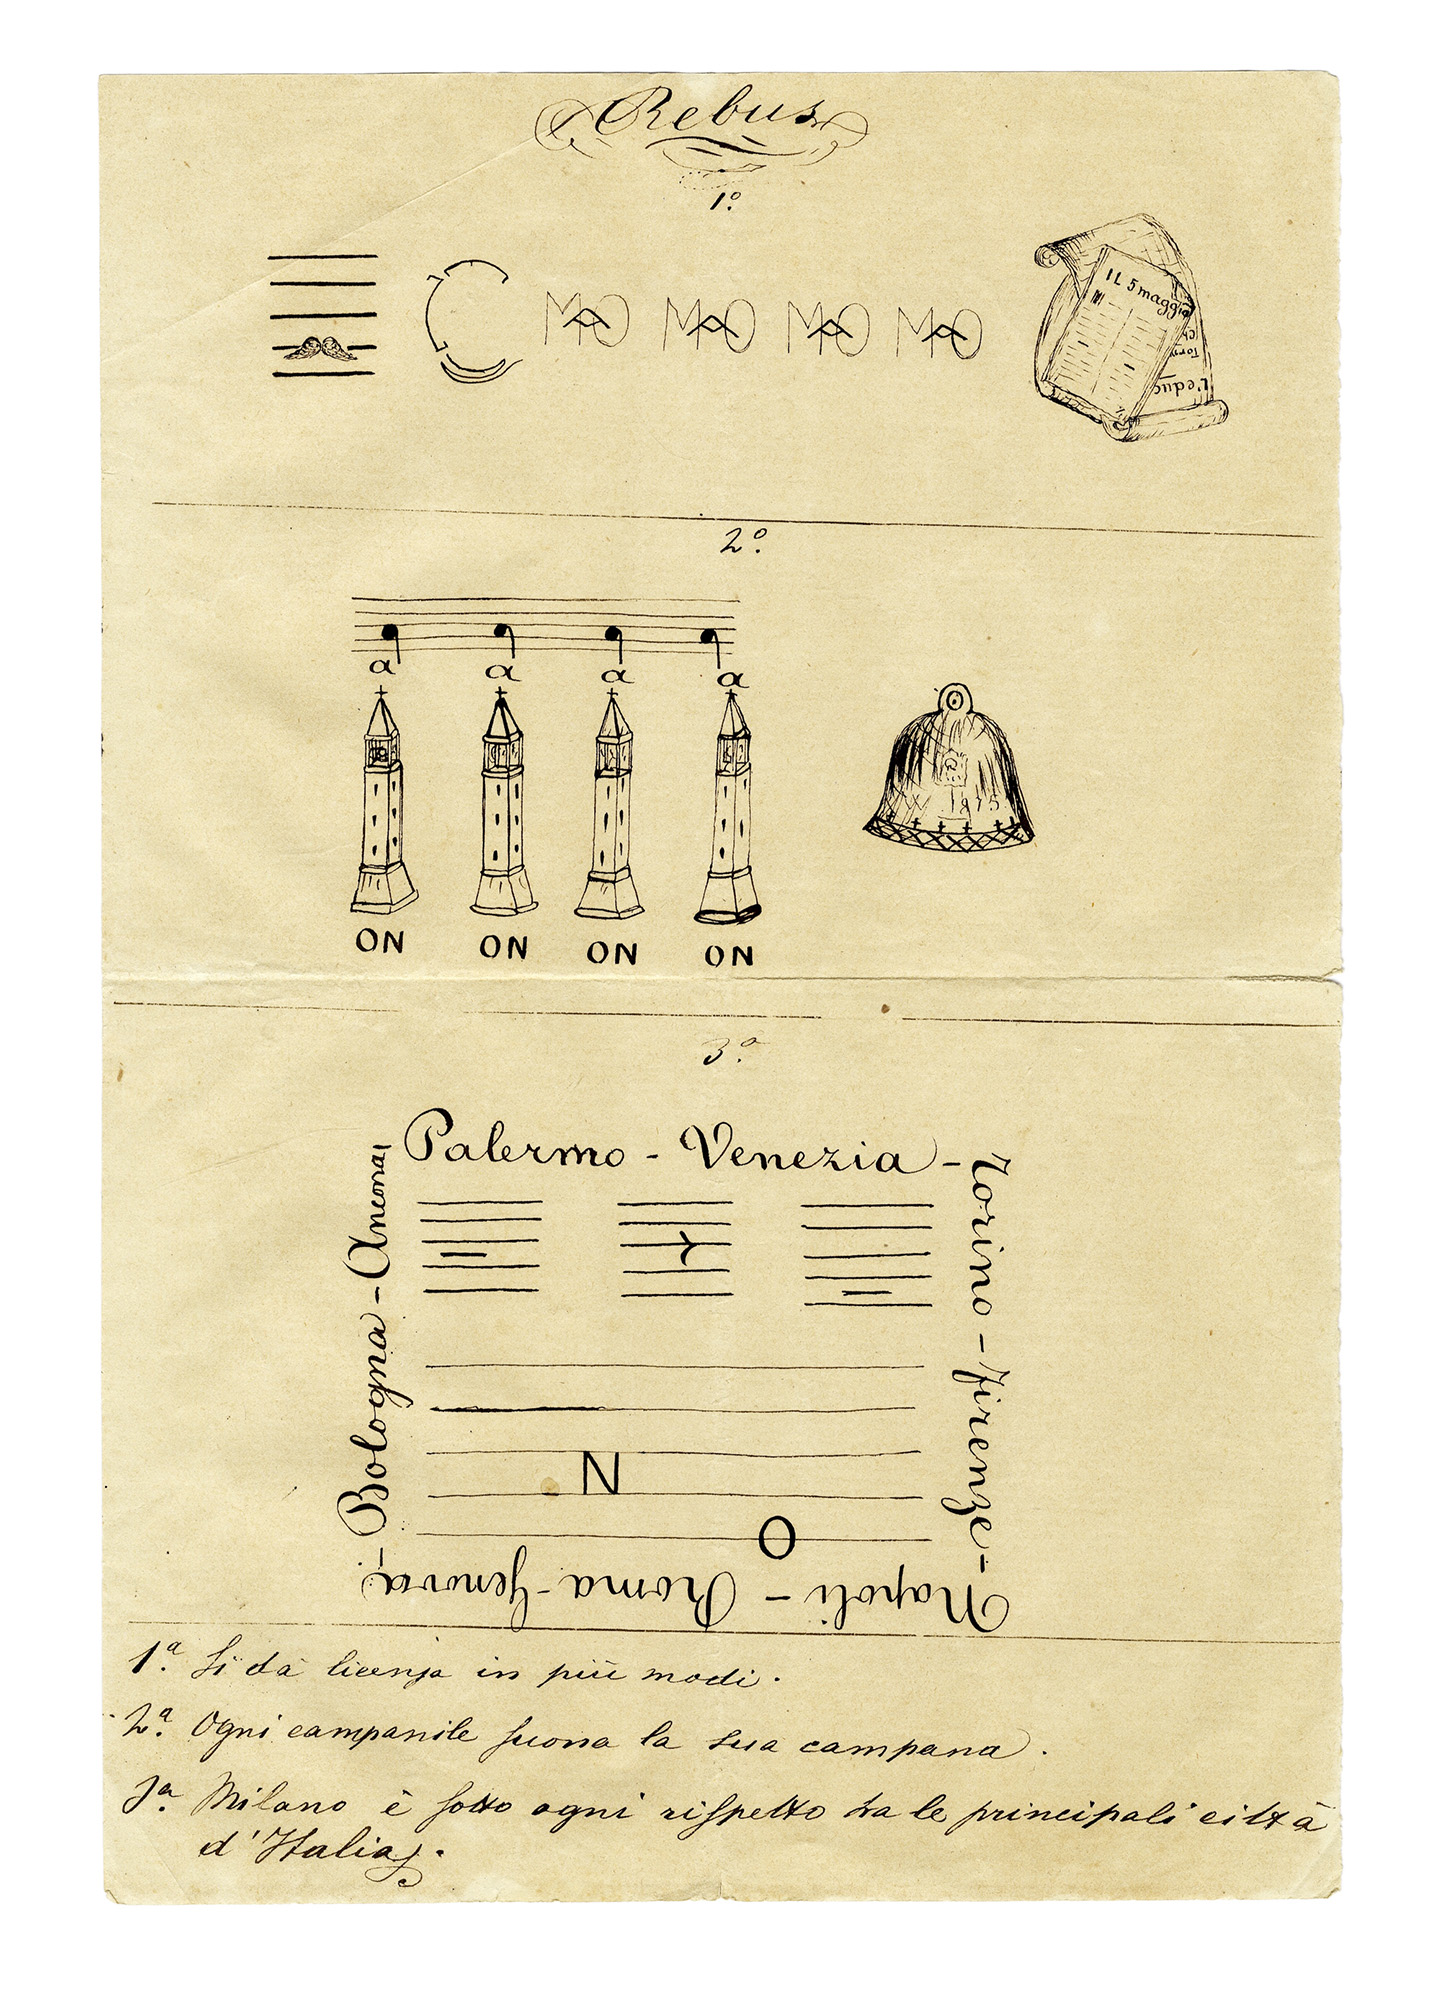 Rebus
1º
MAO MAO MAO MAO
IL 5 maggio
L'educ
2º
a a a a
1875
ON ON ON ON
3º
Palermo - Venezia -
Torino - Firenze -
Napoli - Roma - Genova
- Bologna - Ancona
N
O
1ª. Si dà licenza in più modi.
2ª. Ogni campanile suona la sua campana.
3ª. Milano è sotto ogni rispetto tra le principali città
d'Italia.